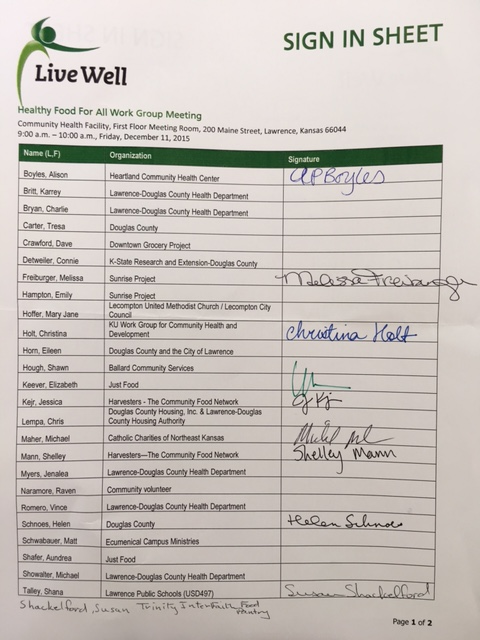 SIGN IN SHEET
Live Well
Healthy Food For All Work Group Meeting
Community Health Facility, First Floor Meeting Room, 200 Maine Street, Lawrence, Kansas 66044
9:00 a.m. – 10:00 a.m., Friday, December 11, 2015
Name (L,F) Organization Signature
Boyles, Alison Heartland Community Health Center APBoyles
Britt, Karrey Lawrence-Douglas County Health Department
Bryan, Charlie Lawrence-Douglas County Health Department
Carter, Tresa Douglas County
Crawford, Dave Downtown Grocery Project
Detweiler, Connie K-State Research and Extension-Douglas County
Freiburger, Melissa Sunrise Project Melissa Freiburger
Hampton, Emily Sunrise Project
Hoffer, Mary Jane Lecompton United Methodist Church / Lecompton City
Council
Holt, Christina KU Work Group for Community Health and
Development Christina Holt
Horn, Eileen Douglas County and the City of Lawrence
Hough, Shawn Ballard Community Services
Keever, Elizabeth Just Food
Kejr, Jessica Harvesters - The Community Food Network
Lempa, Chris Douglas County Housing, Inc. & Lawrence-Douglas
County Housing Authority
Maher, Michael Catholic Charities of Northeast Kansas
Mann, Shelley Harvesters—The Community Food Network Shelley Mann
Myers, Jenalea Lawrence-Douglas County Health Department
Naramore, Raven Community volunteer
Romero, Vince Lawrence-Douglas County Health Department
Schnoes, Helen Douglas County Helen Schnoes
Schwabauer, Matt Ecumenical Campus Ministries
Shafer, Aundrea Just Food
Showalter, Michael Lawrence-Douglas County Health Department
Talley, Shana Lawrence Public Schools (USD497) Susan Shackelford
Shackelford, Susan Trinity Interfaith Food
Pantry
Page 1 of 2